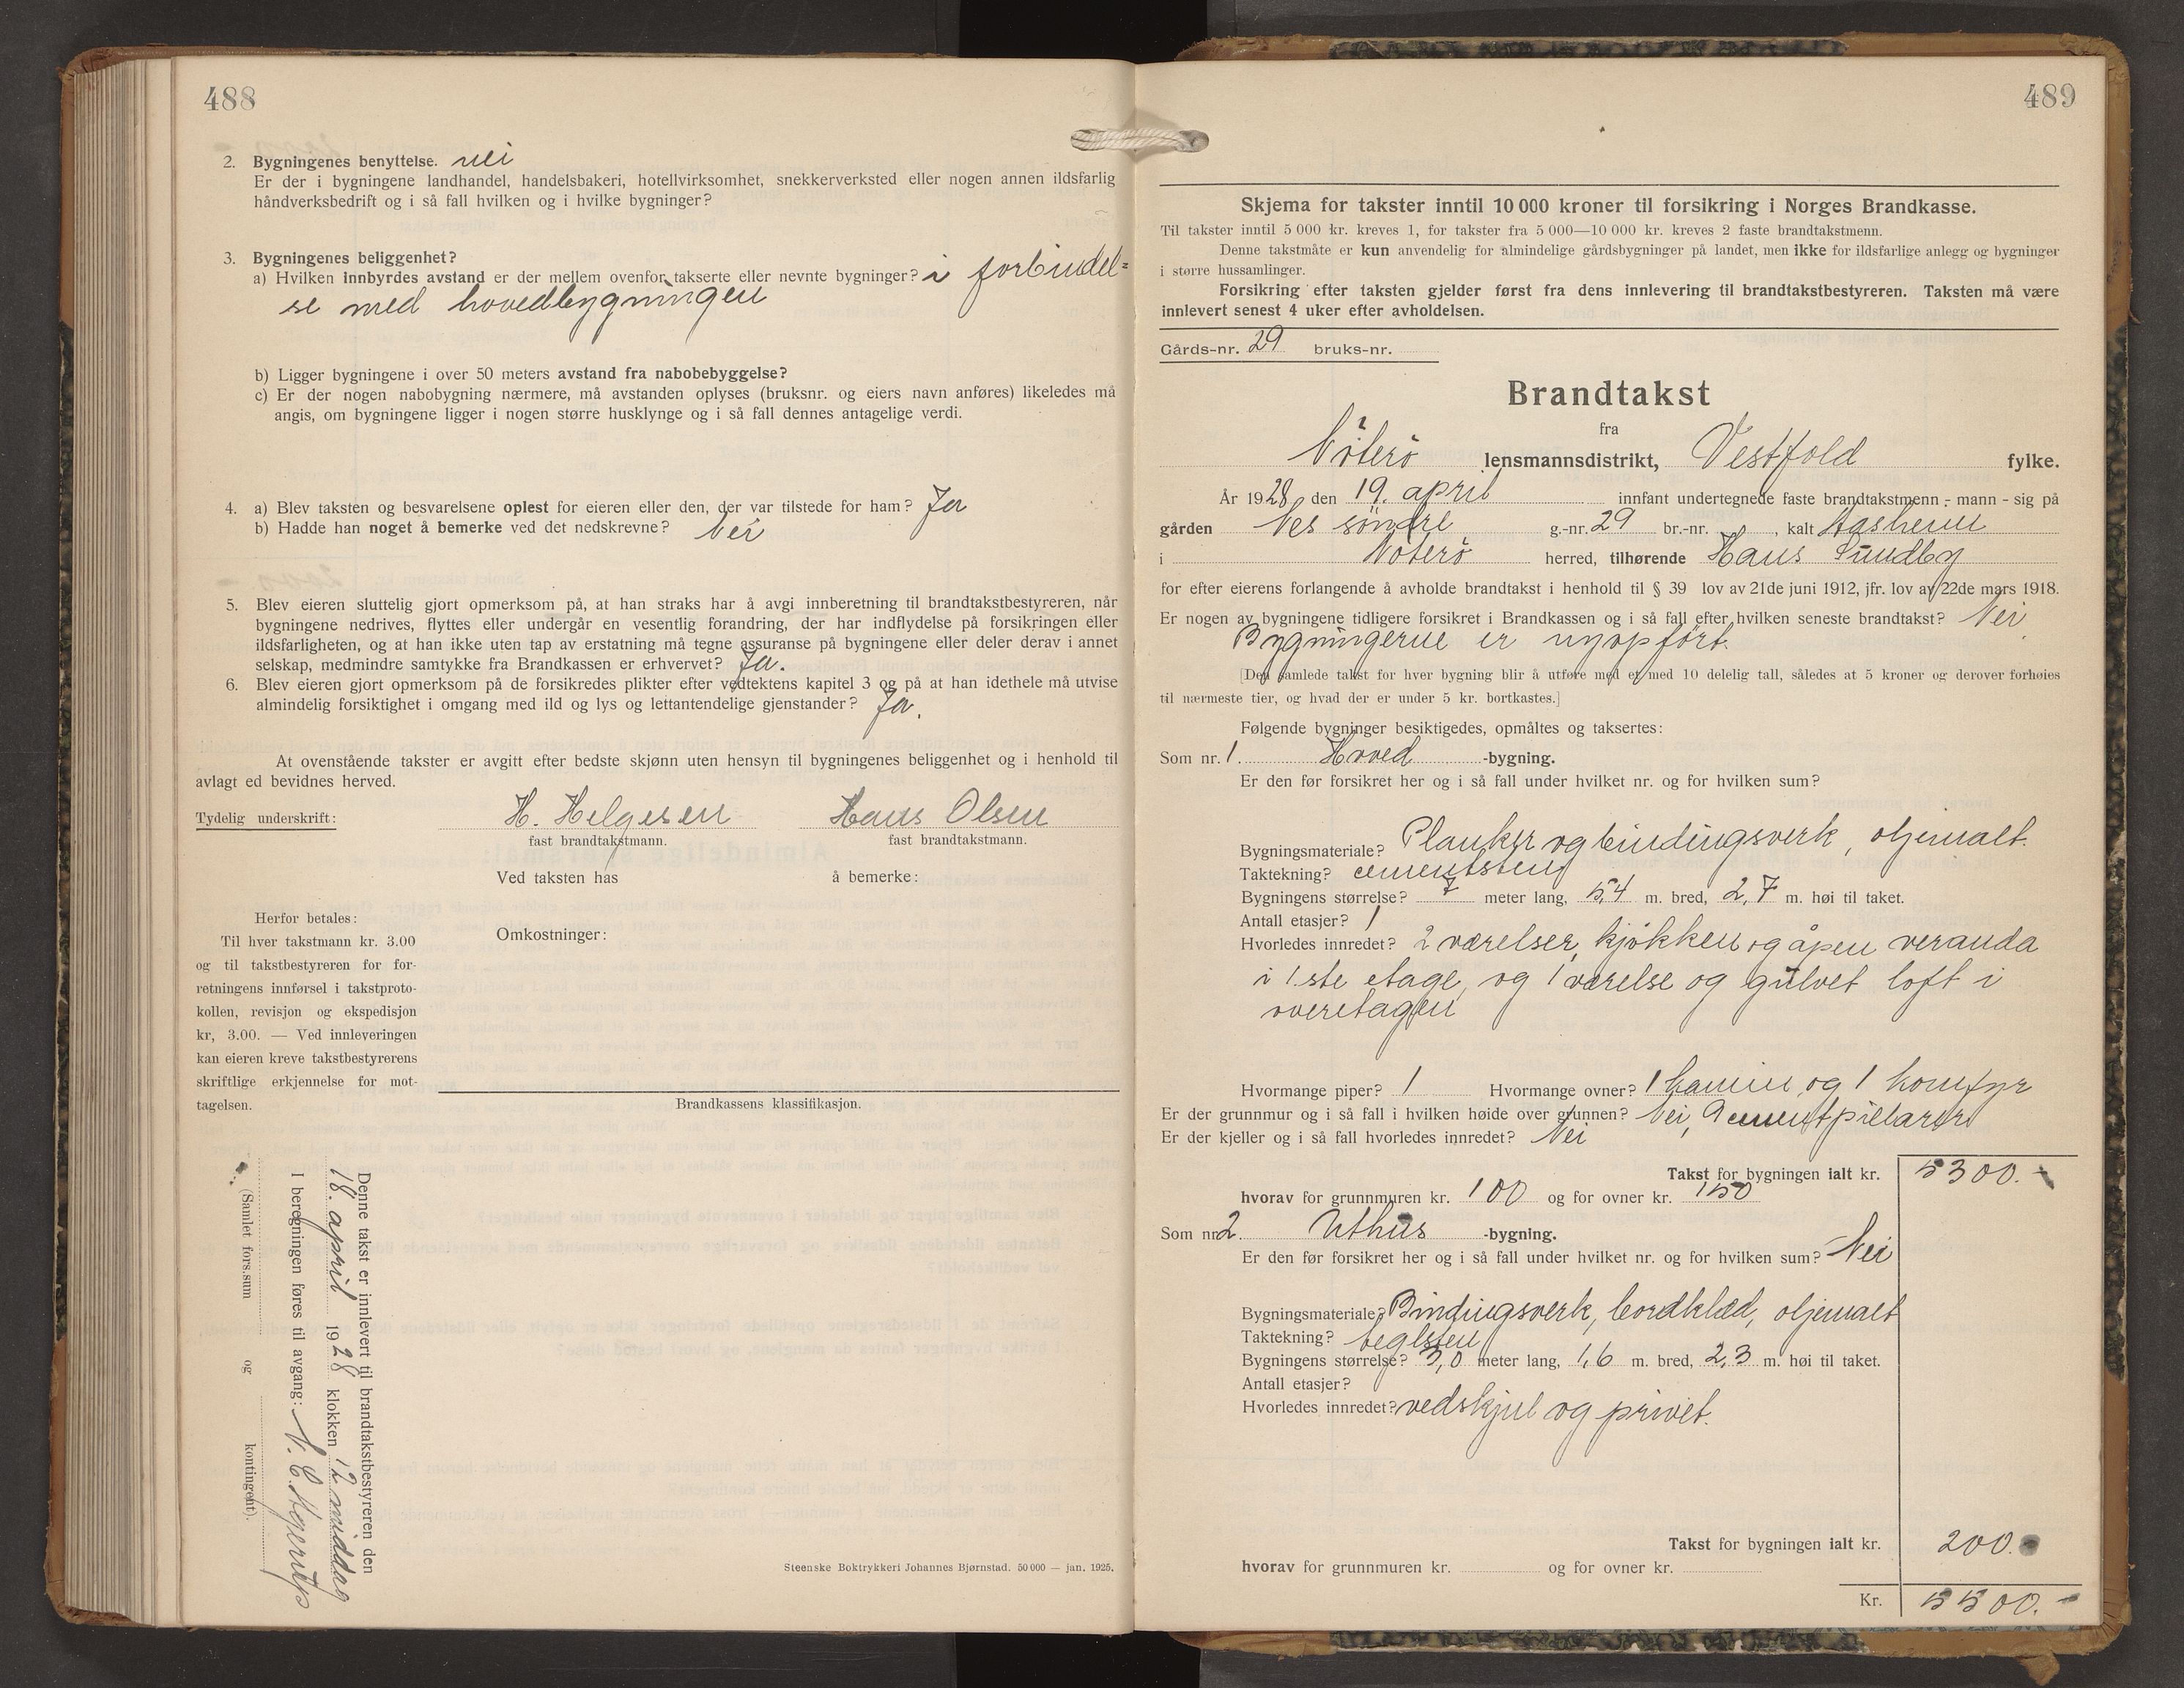 488
2. Bygningenes benyttelse. nei
Er der i bygningene landhandel, handelsbakeri, hotellvirksomhet, snekkerverksted eller nogen annen ildsfarlig
håndverksbedrift og i så fall hvilken og i hvilke bygninger?
3. Bygningenes beliggenhet?
a) Hvilken innbyrdes avstand er der mellem ovenfor takserte eller nevnte bygninger? i forbindel=
se med hovedbygningen
b) Ligger bygningene i over 50 meters avstand fra nabobebyggelse?
c) Er der nogen nabobygning nærmere, må avstanden oplyses (bruksnr. og eiers navn anføres) likeledes må
angis, om bygningene ligger i nogen større husklynge og i så fall dennes antagelige verdi.
4. a) Blev taksten og besvarelsene oplest for eieren eller den, der var tilstede for ham? Ja
b) Hadde han noget å bemerke ved det nedskrevne? Nei
5. Blev eieren sluttelig gjort opmerksom på, at han straks har å avgi innberetning til brandtakstbestyreren, når
bygningene nedrives, flyttes eller undergår en vesentlig forandring, der har indflydelse på forsikringen eller
ildsfarligheten, og at han ikke uten tap av erstatning må tegne assuranse på bygningene eller deler derav i annet
selskap, medmindre samtykke fra Brandkassen er erhvervet? Ja.
6. Blev eieren gjort opmerksom på de forsikredes plikter efter vedtektens kapitel 3 og på at han idethele må utvise
almindelig forsiktighet i omgang med ild og lys og lettantendelige gjenstander? Ja.
At ovenstående takster er avgitt efter bedste skjønn uten hensyn til bygningenes beliggenhet og i henhold til
avlagt ed bevidnes herved.
Tydelig underskrift: H. Helgesen Hans Olsen
fast brandtakstmann. fast brandtakstmann.
Ved taksten has å bemerke:
Herfor betales:
Til hver takstmann kr. 3.00
og til takstbestyreren for for-
retningens innførsel i takstproto-
kollen, revisjon og ekspedisjon
kr, 3.00. — Ved innleveringen
kan eieren kreve takstbestyrerens
skriftlige erkjennelse for mot-
tagelsen.
Omkostninger:
Brandkassens klassifikasjon.
Denne takst er innlevert til brandtakstbestyreren den
18. april 1928 klokken 12 middag
I beregningen føres til avgang:
(Samlet fors.sum og kontingent).
Steenske Boktrykkeri Johannes Bjørnstad. 50 000 — jan. 1925.
489
Skjema for takster inntil 10 000 kroner til forsikring i Norges Brandkasse.
Til takster inntil 5 000 kr. kreves 1, for takster fra 5 000—10 000 kr. kreves 2 faste brandtakstmenn.
Denne takstmåte er kun anvendelig for almindelige gårdsbygninger på landet, men ikke for ildsfarlige anlegg og bygninger
i større hussamlinger.
Forsikring efter taksten gjelder først fra dens innlevering til brandtakstbestyreren. Taksten må være
innlevert senest 4 uker efter avholdelsen.
Gårds-nr. 29 bruks-nr.
Brandtakst
fra
Nöterö lensmannsdistrikt, Vestfold fylke.
År 1928 den 19. april innfant undertegnede faste brandtakstmenn - mann - sig på
gården Nes söndre g.-nr. 29 br.-nr. , kalt
i Nöterö herred, tilhørende Hans Sundby
for efter eierens forlangende å avholde brandtakst i henhold til § 39 lov av 21de juni 1912, jfr. lov av 22de mars 1918.
Er nogen av bygningene tidligere forsikret i Brandkassen og i så fall efter hvilken seneste brandtakst? Nei
Bygningerne er nyopfört.
[Den samlede takst for hver bygning blir å utføre med et med 10 delelig tall, således at 5 kroner og derover forhøies
til nærmeste tier, og hvad der er under 5 kr. bortkastes.]
Følgende bygninger besiktigedes, opmåltes og taksertes:
Som nr. 1. Hoved -bygning.
Er den før forsikret her og i så fall under hvilket nr. og for hvilken sum?
Bygningsmateriale? Planker og bindingsverk, oljemalt.
Taktekning? cementsten
Bygningens størrelse? 7 meter lang, 5,4 m. bred, 2,7 m. høi til taket.
Antall etasjer? 1
Hvorledes innredet? 2 værelser, kjökken og åpen veranda
i 1.ste etage, og 1 værelse og gulvet loft i
overetagen
Hvormange piper? 1 Hvormange ovner? 1 kamin og 1 komfyr
Er der grunnmur og i så fall i hvilken høide over grunnen? Nei, 9 cementpillarer
Er der kjeller og i så fall hvorledes innredet? Nei
Takst for bygningen ialt kr. 5300.-
hvorav for grunnmuren kr. 100 og for ovner kr. 150
Som nr 2. Uthus -bygning.
Er den før forsikret her og i så fall under hvilket nr. og for hvilken sum? Nei
Bygningsmateriale? Bindingsverk, bordklæd, oljemalt
Taktekning? teglsten
Bygningens størrelse? 3,0 meter lang, 1,6 m. bred, 2,3 m. høi til taket.
Antall etasjer?
Hvorledes innredet? vedskjul og privet.
Takst for bygningen ialt kr. 200.-
hvorav for grunnmuren kr. og for ovner kr.
Kr. 5500.-